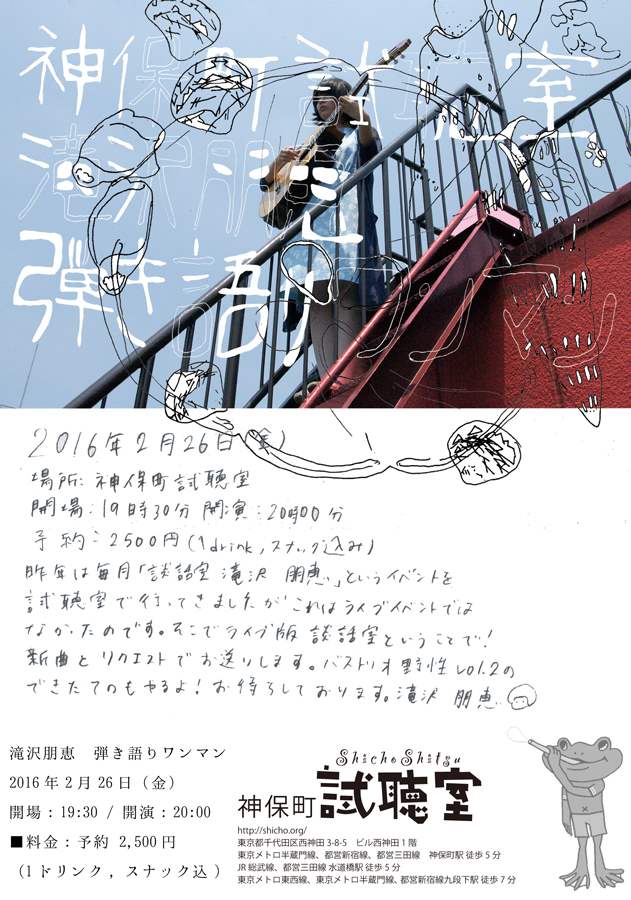 神保町試聴室
滝沢朋恵
弾き語りワンマン
2016年2月26日(金)
場所:神保町試聴室
開場:19時30分 開演:20時00分
予約:2500円(1drink,スナック込み)
昨年は毎月「談話室 滝沢 朋恵」というイベントを
試聴室で行ってきましたが これはライブイベントでは
なかったのです。そこでライブ版 談話室ということで!
新曲とリクエストでお送りします。バストリオ野性vol.2の
できたてのもやるよ!お待ちしております。滝沢 朋恵
滝沢朋恵 弾き語りワンマン
2016年2月26日(金)
開場:19:30 / 開演:20:00
■料金:予約 2,500円
(1ドリンク,スナック込)
Shicho Shitsu
神保町 試聴室
http://shicho.org/
東京都千代田区西神田3-8-5 ビル西神田1階
東京メトロ半蔵門線、都営新宿線、都営三田線 神保町駅 徒歩5分
JR総武線、都営三田線 水道橋駅 徒歩5分
東京メトロ東西線、東京メトロ半蔵門線、都営新宿線九段下駅 徒歩7分